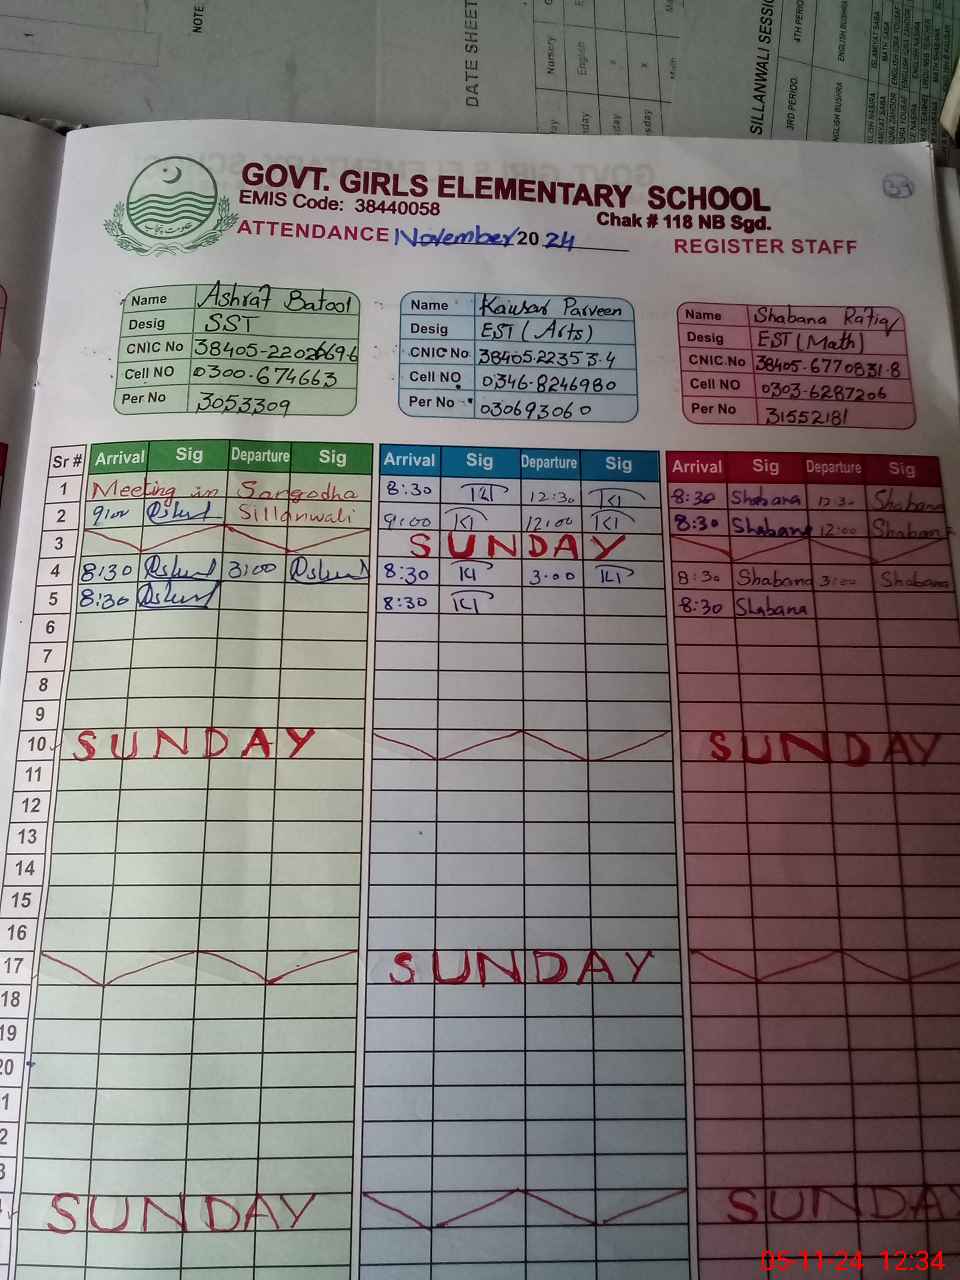 NOTE
1
DATE SHEET
Nursery
English
SILLANWALI SESSI
4TH PERIOD
3RD PERIOD
ENGLISH BUSHRA
GOVT. GIRLS ELEMENTARY SCHOOL
EMIS Code: 38440058
Chak # 118 NB Sgd.
ATTENDANCE November 2024
REGISTER STAFF
Name Ashraf Batool
Desig SST
CNIC No 38405-2202669-6
Cell NO 0300-674663
Per No 3053309
Name Kausar Parveen
Desig EST (Arts)
CNIC No 38405-22353-4
Cell NO 0346-8246980
Per No 030693060
Name Shabana Rafiq
Desig EST (Math)
CNIC No 38405-6770831-8
Cell NO 0303-6287206
Per No 31552181
Sr # Arrival Sig Departure Sig Arrival Sig Departure Sig Arrival Sig Departure Sig
1 Meeting in Sargodha 8:30 12:30 8:30 Shabana 12:30 Shabana
2 9:00 Sillanwali 9:00 12:00 8:30 Shabana 12:00 Shabana
3 SUNDAY
4 8:30 3:00 8:30 3:00 8:30 Shabana 3:00 Shabana
5 8:30 8:30 8:30 Shabana
6
7
8
9
10 SUNDAY SUNDAY
11
12
13
14
15
16
17 SUNDAY
18
19
20
1
2
3
SUNDAY SUNDAY
05-11-24 12:34